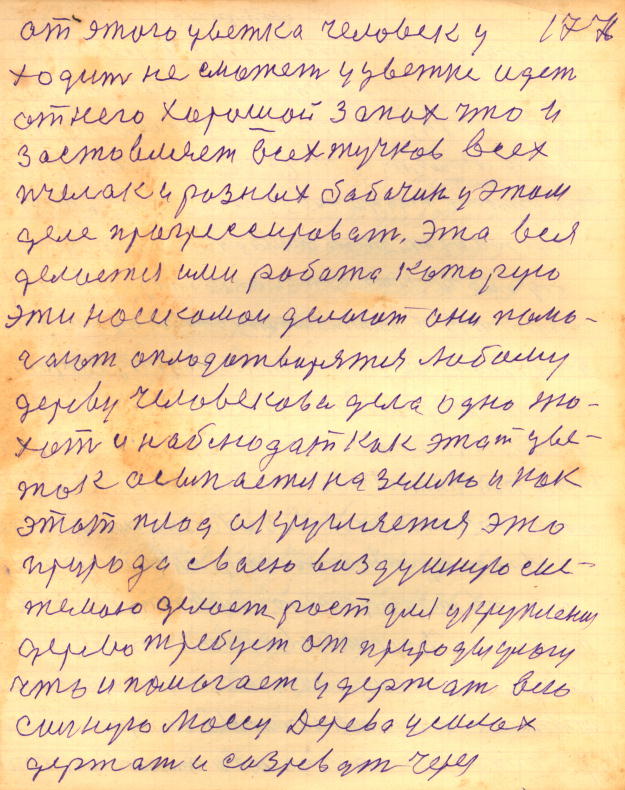 от этого цветка человек у 177
ходит не сможет у цветке идет
от него хорошой запох что и
застовляет всех жучков всех
пчелак и розных бабачик у этом
деле прогрессироват. эта вся
делоется ими робата которую
эти носикомои делоют они помо-
гоют оплодотворятся любому
дереву человекова дела одно
хот и наблюдат как этат цве-
ток осыпается на землю и как
этот плод округляется это
природа сваею воздушную сис-
темою делоет рост для укрупления
дерево требует от природы
что и помогает удержат всю
сичную моссу Дерева усилах
держат и созреват через